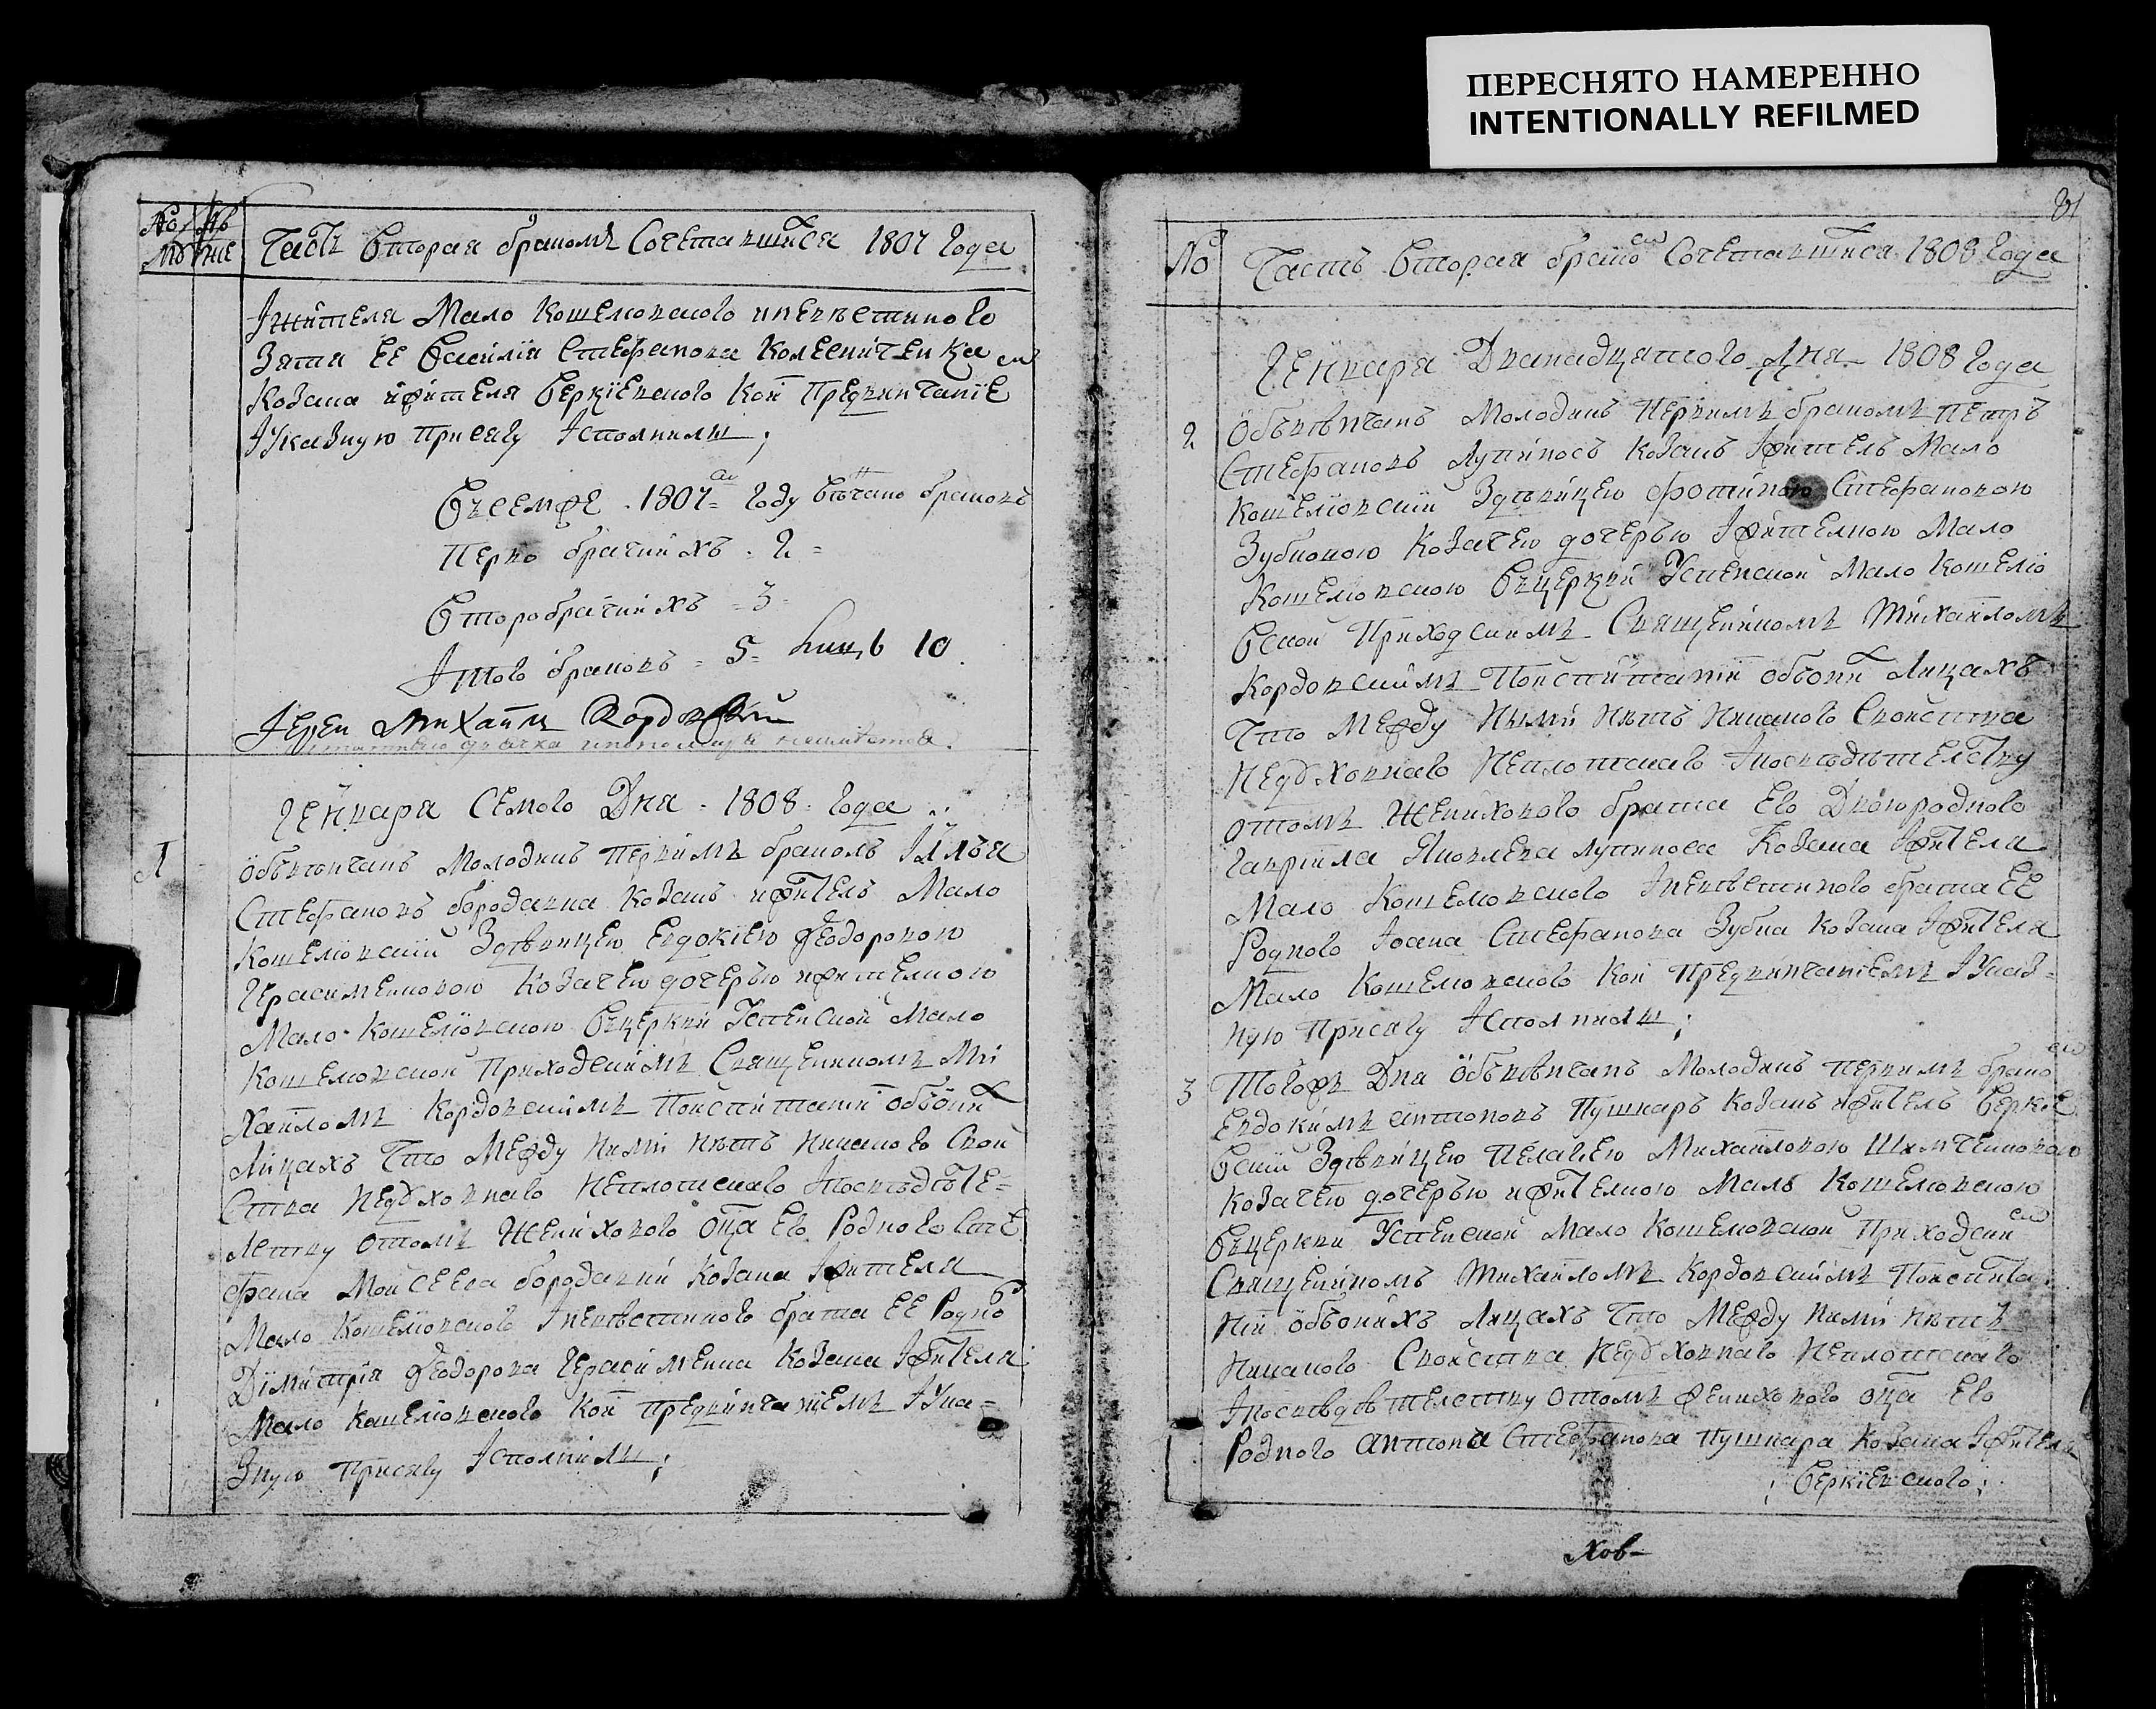 ПЕРЕСНЯТО НАМЕРЕННО
INTENTIONALLY REFILMED
No
Часть Вторая бракомъ Сочетавшихся 1807 года
Іжителя Мало Кошелювского иневестиного
Зятя ЕЕ Василия Стефанова Колесниченка
Козака ижителя Веркіевского Кои Предвинчаніе
Іуказную Присягу Ісполнили;
Въсемже 1807 году Вѣнчано браковъ
Перво брачнихъ 2
Второбрачнихъ 3
Ітого браковъ 5 10
Іерей Михаилъ Кордовский
Генваря Семого Дня 1808 года
1
Обвѣнчанъ Молодикъ Первимъ бракомъ Ілья
Стефановъ бородавка Козакъ ижитель Мало
Кошелювский Здѣвицею Евдокіею Феодоровою
Герасименковою Козачею дочерью ижителкою
Мало Кошелювскою Вцеркви Успенской Мало
Кошелювской Приходскимъ Священикомъ Ми
хаиломъ Кордовскимъ Поиспитании объоних
Лицахъ Что Между ними нѣтъ никакого Свой
Ства недуховнаго неплотскаго Іпосвѣдѣте=
леству отомъ Женихового Отца Его Родного Сте
фана Мойсеева бородавки Козака Іжителя
Мало Кошелювского Іневѣстиного брата ЕЕ Родного
Димитрія Феодорова Герасименка Козака Іжителя
Мало Кошелювского Кои предвинчаниемъ Іука=
Зную Присягу Ісполнили;
81
No
Часть Вторая бракомъ Сочетавшихся 1808 года
Генваря Дванадцятого Дня 1808 года
2
Обвѣнчанъ Молодикъ Первимъ бракомъ Петръ
Стефановъ Лупиносъ Козакъ Іжитель Мало
Кошелювский Здѣвицею Фотиною Стефановою
Зубковою Козачею дочерью Іжителкою Мало
Кошелювскою Вцеркви Успенской Мало Кошелю
Вской Приходскимъ Священикомъ Михаиломъ
Кордовскимъ Поиспитаніи объоних Лицахъ
Что Между Ними Нѣтъ Никакого Свойства
Недуховнаго Неплотскаго Іпосвѣдѣтелству
отомъ Женихового брата Его Двоюродного
Гавріила Яковлева Лупиноса Козака Іжителя
Мало Кошелювского Іневѣстиного брата ЕЕ
Родного Іоана Стефанова Зубка Козака Іжителя
Мало Кошелювского Кои Предвинчаніемъ Іуказ=
ную Присягу Ісполнили;
3
Тогожъ Дня Обвѣнчанъ Молодикъ первимъ бракомъ
Евдокимъ Антоновъ Пушкаръ Козакъ ижитель Веркіе
Вский Здѣвицею Пелагіею Михайловою
Козачею дочерью ижителкою Мало Кошелювскою
Вцеркви Успенской Мало Кошелювской Приходским
Священикомъ Михаиломъ Кордовскимъ Поиспита
нии объонихъ Лицахъ Что Между ними нѣтъ
Никакого Свойства Недуховнаго Неплотскаго
Іпосвѣдѣтелству отомъ женихового отца Его
Родного Антона Стефанова Пушкара Козака Іжителя
Веркіевского;